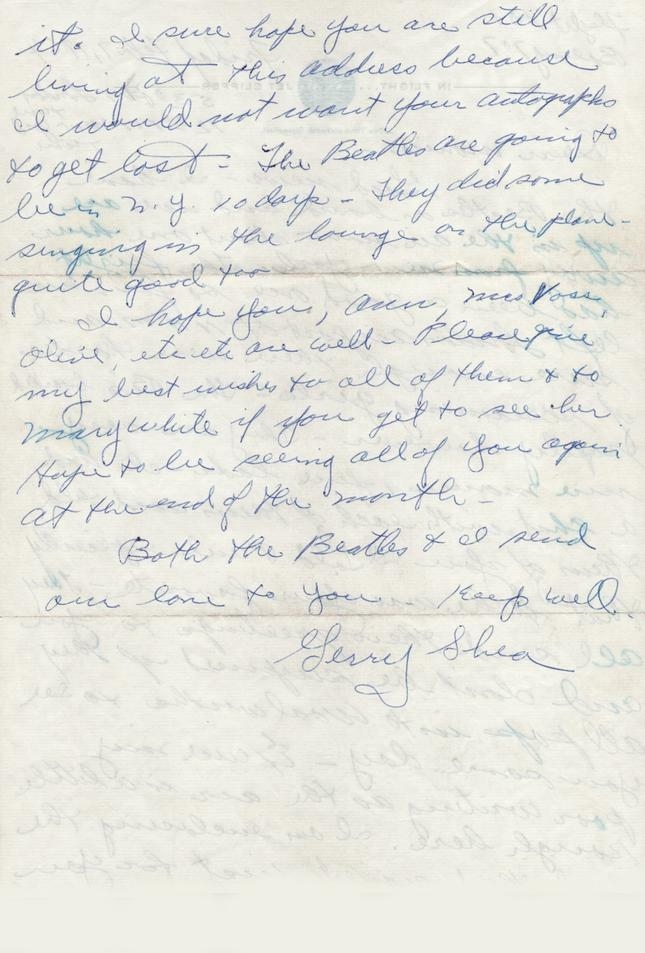 it. I sure hope you are still
living at this address because
I would not want your autographs
to get lost - The Beatles are going to
be in N.Y. 10 days - They did some
singing in the lounge on the plane -
quite good too
I hope you, Ann, Mrs Voss,
Olive, etc etc are well - Please give
my best wishes to all of them & to
Mary White if you get to see her.
Hope to be seeing all of you again
at the end of the month -
Both the Beatles & I send
our love to you. Keep well.
Gerry Shea